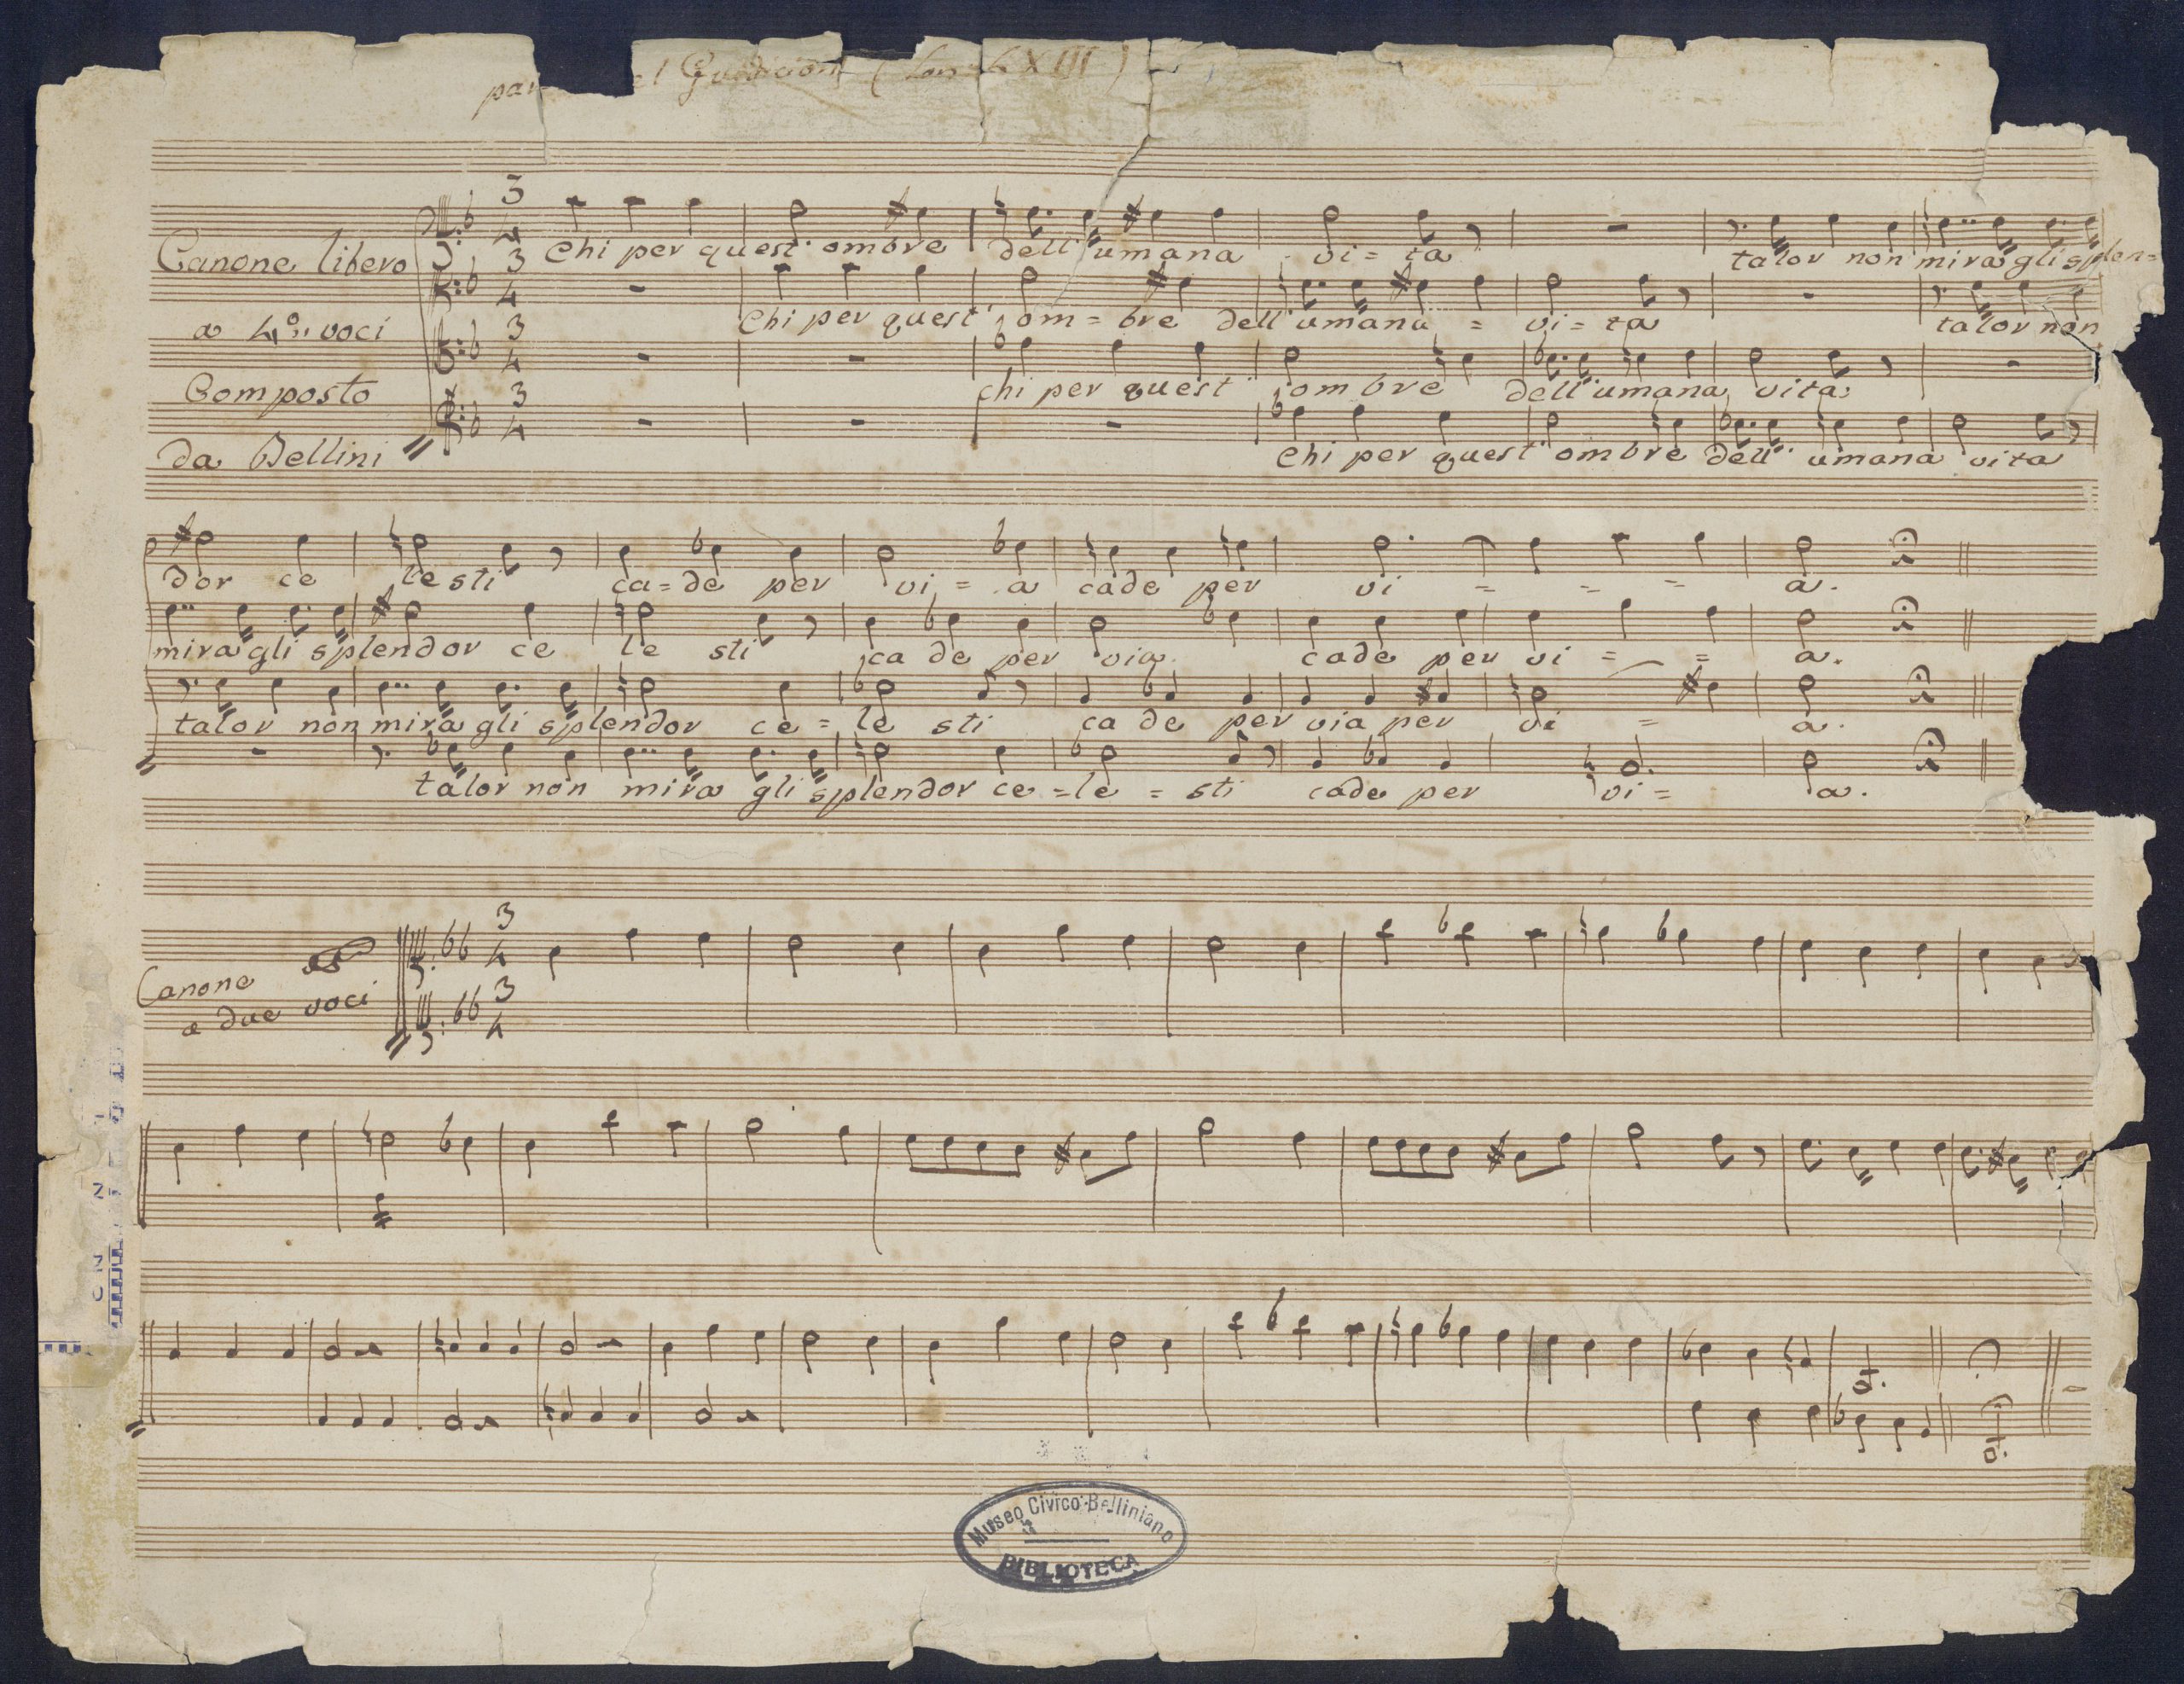 el Guidicioni ( XIII )
Canone libero
a 4º voci
Composto
da Bellini
3 4
Chi per quest' ombre dell' umana vi = ta talor non mira gli splen=
3 4
Chi per quest' om = bre dell' umana = vi = ta talor non
3 4
chi per quest' ombre dell' umana vita
3 4
Chi per quest' ombre dell' umana vita
dor ce lesti ca = de per vi = a cade per vi = = = a.
mira gli splendor ce le sti ca de per via cade per vi = = a.
talor non mira gli splendor ce = le sti ca de per via per vi = a.
talor non mira gli splendor ce = le = sti cade per vi = a.
Canone
a due voci
3 4
3 4
Museo Civico Belliniano
BIBLIOTECA